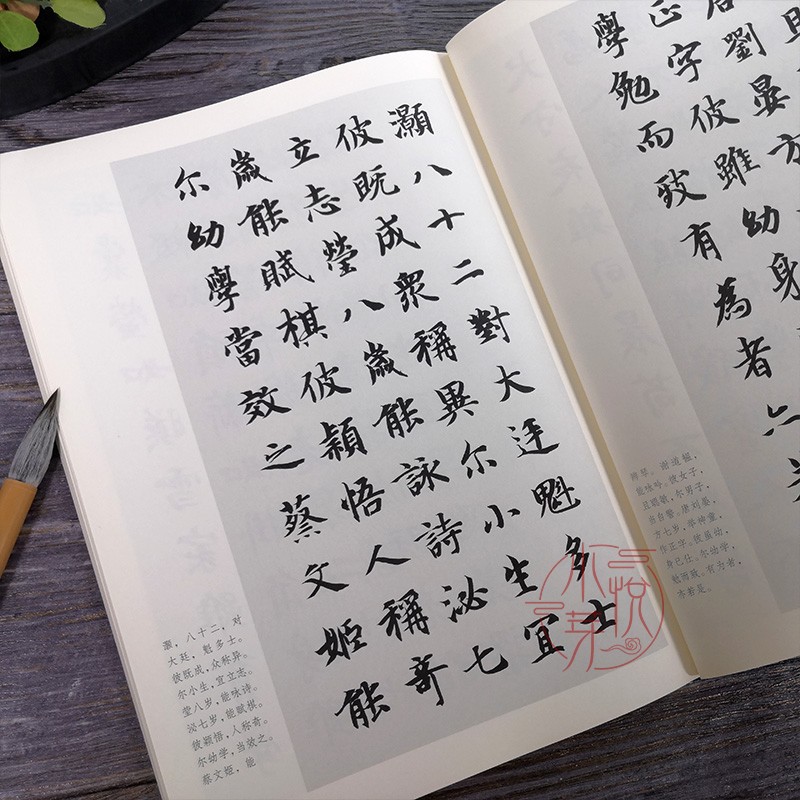 且
唐劉晏方
正字彼雖幼身
學勉而致有為者亦若
辨琴。谢道韫，
能咏吟。彼女子，
且聪敏，尔男子，
当自警。唐刘晏，
方七岁，举神童，
作正字。彼虽幼，
身已仕。尔幼学，
勉而致。有为者，
亦若是。
灝八十二對大廷魁多士
彼既成眾稱異尔小生宜
立志瑩八歲能詠詩泌七
歲能賦棋彼穎悟人稱奇
尔幼學當效之蔡文姬能
灏，八十二，对
大廷，魁多士。
彼既成，众称异。
尔小生，宜立志。
莹八岁，能咏诗。
泌七岁，能赋棋。
彼颖悟，人称奇。
尔幼学，当效之。
蔡文姬，能